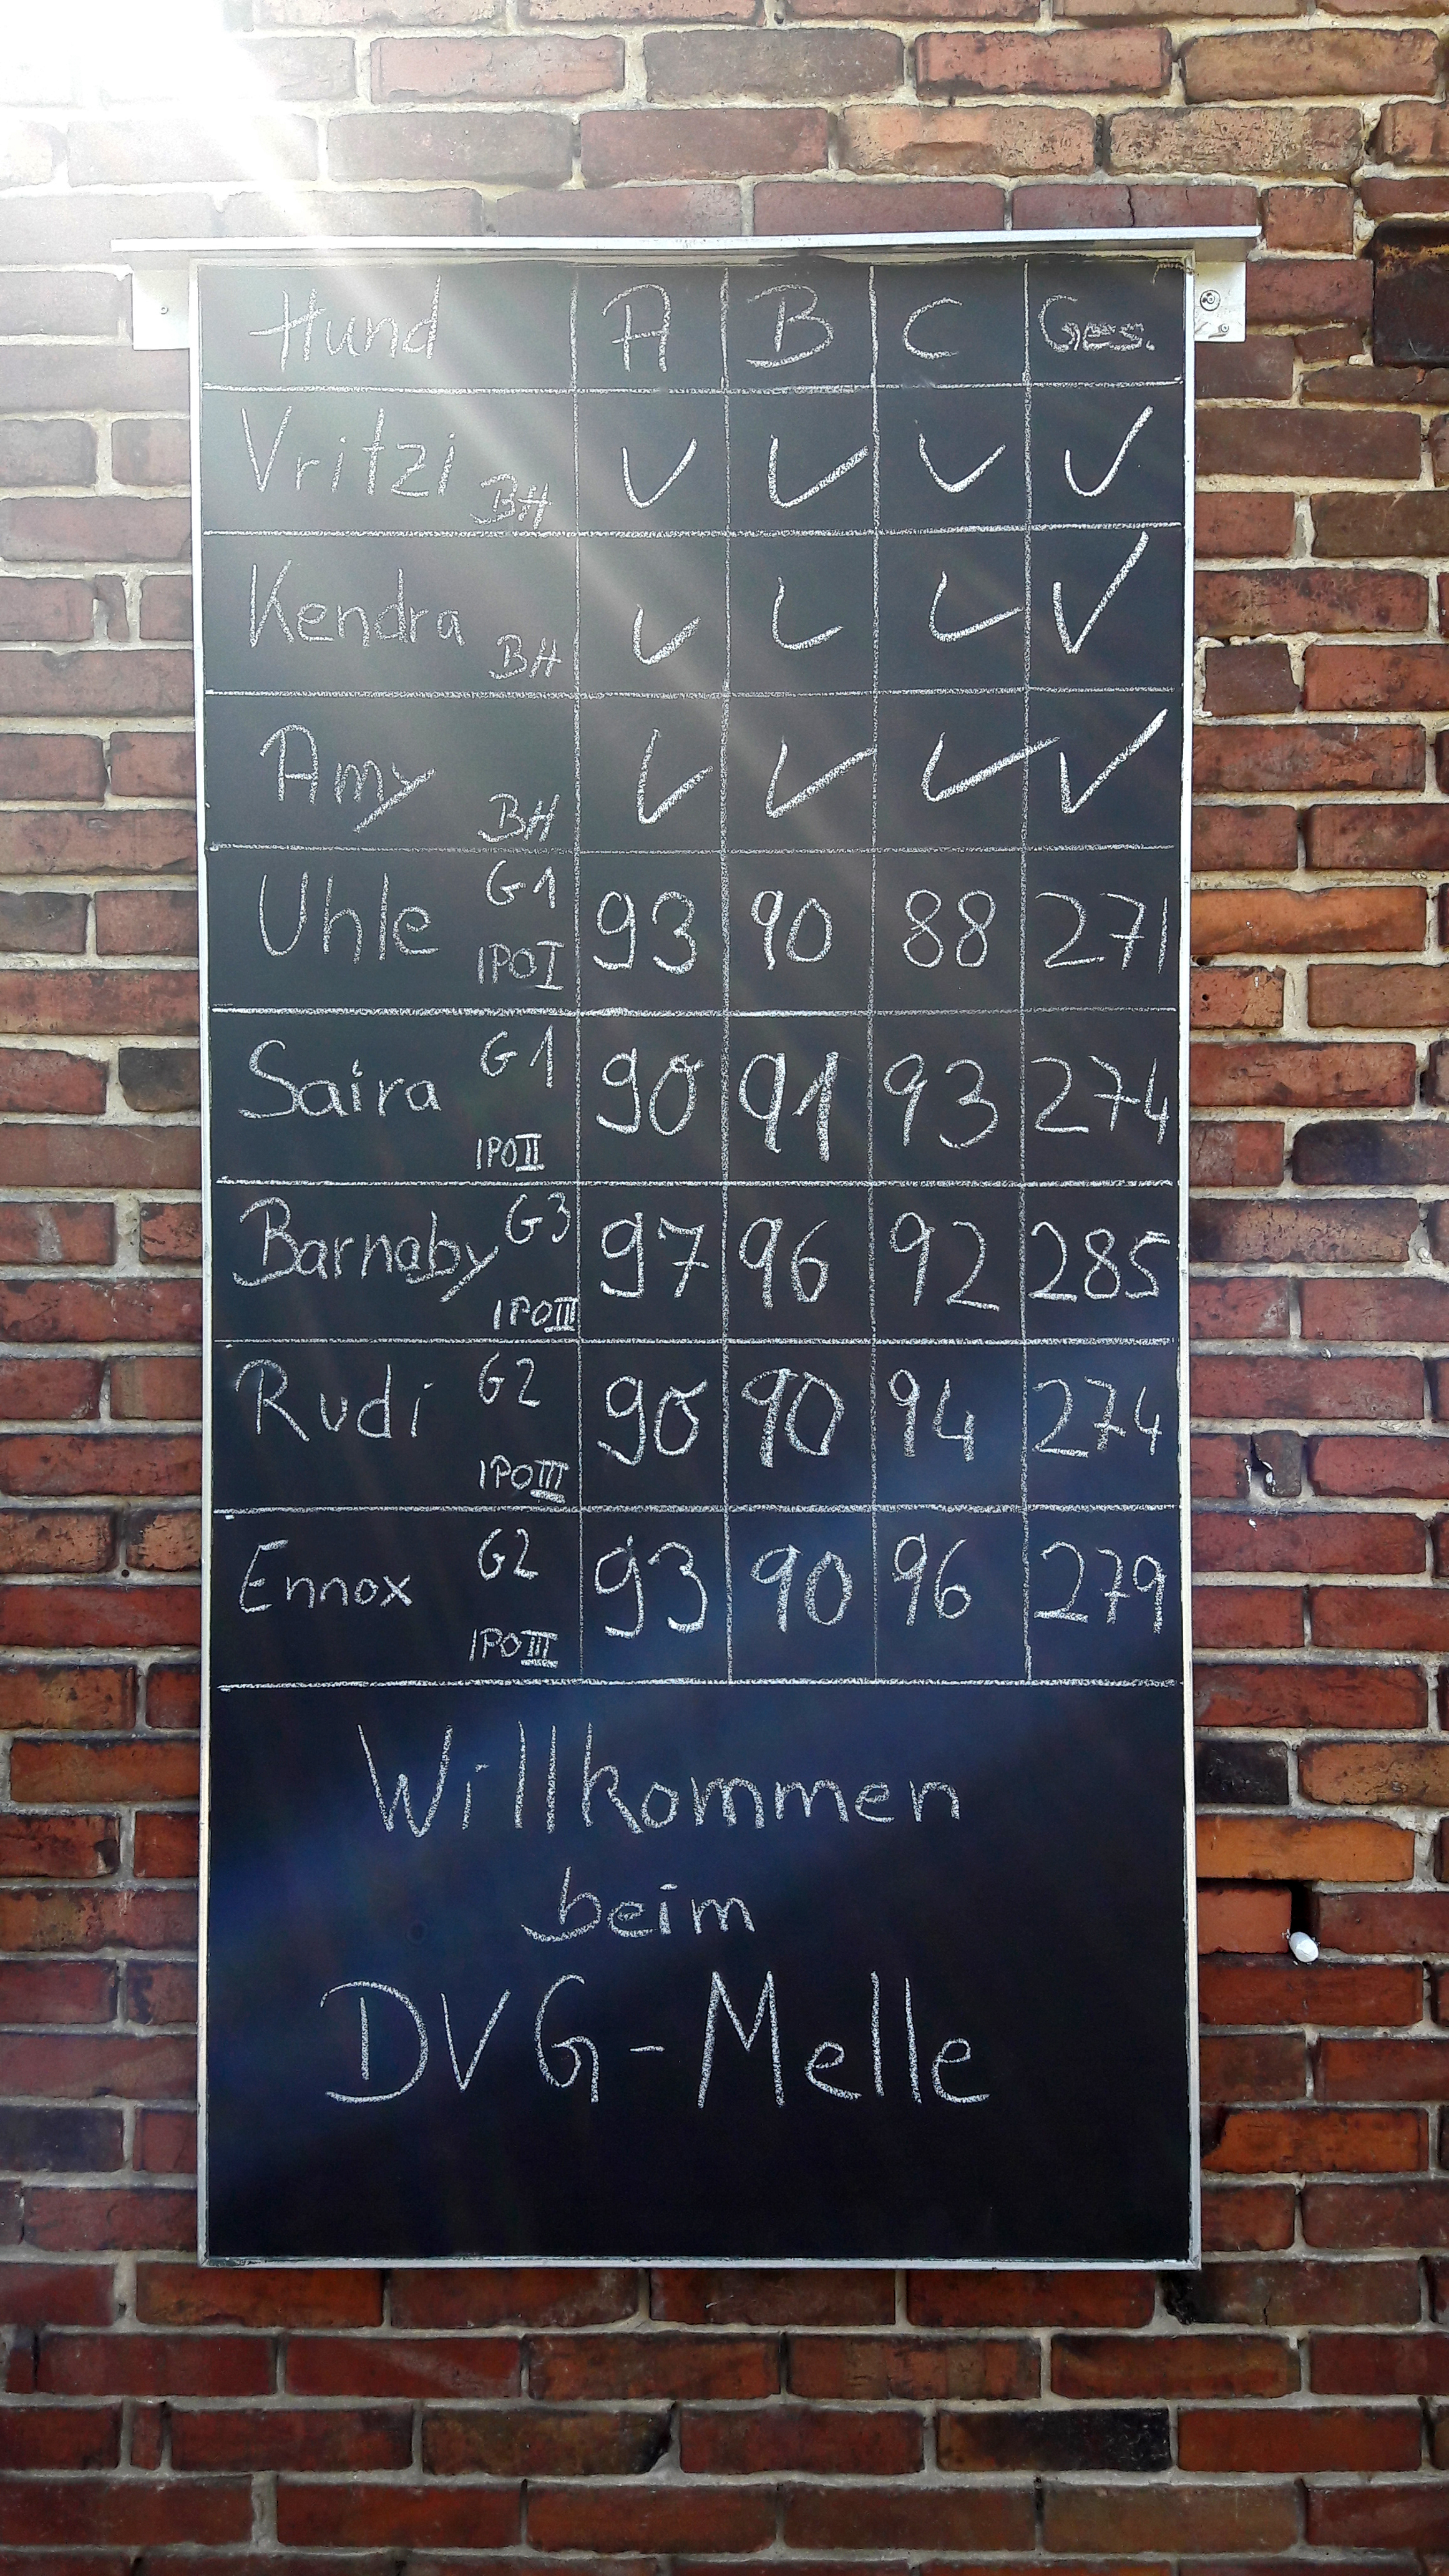 Hund A B C Ges.
Vritzi BH ✓ ✓ ✓ ✓
Kendra BH ✓ ✓ ✓ ✓
Amy BH ✓ ✓ ✓ ✓
Uhle G1 IPO I 93 90 88 271
Saira G1 IPO II 90 91 93 274
Barnaby G3 IPO III 97 96 92 285
Rudi G2 IPO III 90 90 94 274
Ennox G2 IPO III 93 90 96 279
Willkommen
beim
DVG-Melle